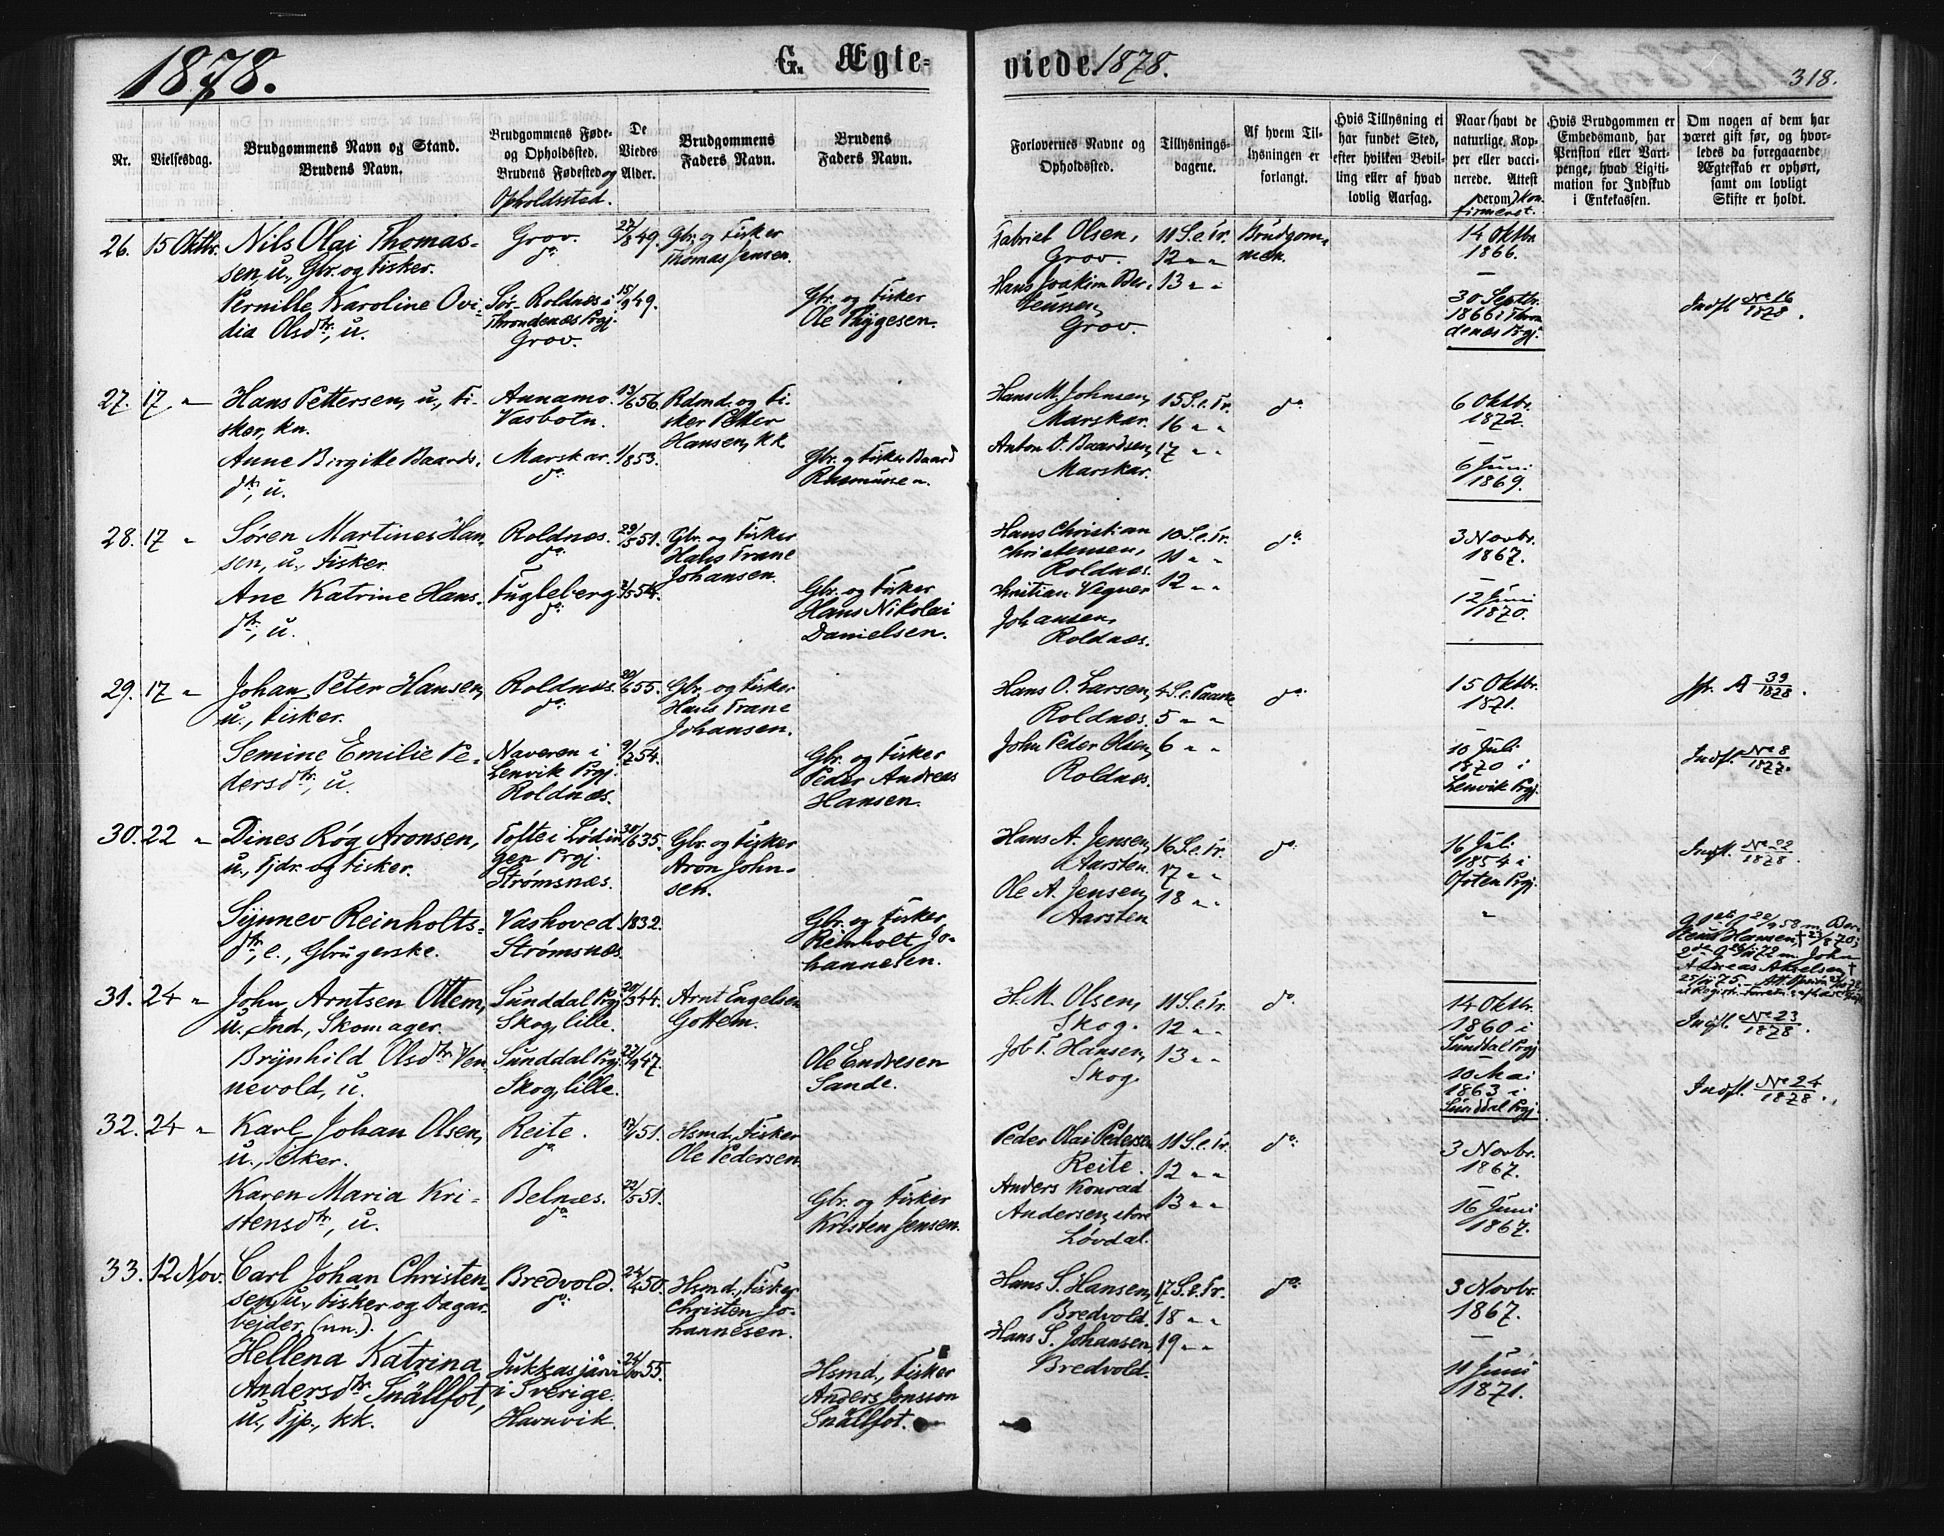 1878.
G. Ægte-
viede. 1878.
318.
Nr.
Vielsesdag.
Brudgommens Navn og Stand.
Brudens Navn.
Brudgommens Føde-
og Opholdssted.
Brudens Fødested og
Opholdssted.
De
Viedes
Alder.
Brudgommens
Faders Navn.
Brudens
Faders Navn.
Forlovernes Navne og
Opholdssted.
Tillysnings-
dagene.
Af hvem Til-
lysningen er
forlangt.
Hvis Tillysning ei
har fundet Sted,
efter hvilken Bevil-
ling eller af hvad
lovlig Aarsag.
Naar (havt de
naturlige Kop-
per eller vacci-
nerede. Attest
derom) Kon-
firmeret.
Hvis Brudgommen er
Embedsmand, har
Pension eller Vart-
penge, hvad Ligiti-
mation for Indskud
i Enkekassen.
Om nogen af dem har
været gift før, og hvor-
ledes da foregaaende
Ægteskab er ophørt,
samt om lovligt
Skifte er holdt.
26. 15 Oktbr.
Nils Olai Thomas-
sen, u., Gbr. og Fisker.
Pernille Karoline Ovi-
dia Olsdtr., u.
Grov.
do
Sør-Roldnæs i
Throndenæs Prgj.
Grov.
27/8 49.
15/9 49.
Gbr. og Fisker
Thomas Jensen.
Gbr. og Fisker
Ole Thygesen.
Gabriel Olsen,
Grov.
Hans Joakim Ber-
teussen,
Grov.
11 S. e. Tr.
12 " "
13 " "
Brudgom-
men.
14 Oktbr.
1866.
30 Septbr.
1866 i Thron
denæs Prgj.
Indfl. No 16/1878.
27. 17 "
Hans Pettersen, u., Fi-
sker, kn.
Anne Birgitte Baards-
dtr., u.
Annamo.
Vasbotn.
Marskar.
do
13/6 56.
1/8 53.
Rdmd. og Fi-
sker Petter
Hansen, kk.
Gbr. og Fisker Baard
Rasmussen.
Hans M. Johnsen,
Marskar.
Anton O. Baardsen,
Marskar.
15 S. e. Tr.
16 " "
17 " "
do
6 Oktbr.
1872.
6 Juni
1869.
28. 17 "
Søren Martines Han-
sen, u., Fisker.
Ane Katrine Hans-
dtr., u.
Roldnæs.
do
Fugleberg
do
29/5 51.
Gbr. og Fisker
Hans Trane
Johansen.
Gbr. og Fisker
Hans Nikolai
Danielsen.
Hans Christian
Christensen,
Roldnæs.
Kristian Vagner
Johansen,
Roldnæs.
10 S. e. Tr.
11 " "
12 " "
do
3 Novbr.
1867.
12 Juni
1870.
29. 17 "
Johan Peter Hansen,
u., Fisker.
Semine Emilie Pe-
dersdtr., u.
Roldnæs.
do
Naveren i
Lenvik Prgj.
Roldnæs.
20/6 55.
9/2 54.
Gbr. og Fisker
Hans Trane
Johansen.
Gbr. og Fisker
Peder Andreas
Hansen.
Hans O. Larsen,
Roldnæs.
John Peder Olsen,
Roldnæs.
4 S. e. Paaske
5 " "
6 " "
do
15 Oktbr.
1871.
10 Juli
1870 i
Lenvik Prgj.
A 39/1878.
Indfl. No 8/1877.
30. 22 "
Dines Røg Aronsen,
u., Fjdr. og Fisker.
Synnev Reinholts-
dtr., e., Gbrugerske.
Tofte i Lødin
gen Prgj.
Strømsnæs.
Vashoved
Strømsnæs.
30/6 35.
1832.
Gbr. og Fisker
Aron John-
sen.
Gbr. og Fisker
Reinholt Jo-
hannesen.
Hans A. Jensen,
Aarsten.
Ole A. Jensen,
Aarsten
16 S. e. Tr.
17 " "
18 " "
do
16 Juli
1854 i
Ofoten Prgj.
"
Indfl. No 22/1878.
31. 24 "
John Arntsen Ottem,
u., Ind., Skomager.
Brynhild Olsdtr. Ven
nevold, u.
Sunddal Prgj.
Skog, lille.
Sunddal Prgj.
Skog, lille.
20/3 44.
22/9 47.
Arnt Engelsen
Gottem.
Ole Endresen
Sande.
H. M. Olsen,
Skog.
Job T. Hansen,
Skog.
11 S. e. Tr.
12 " "
13 " "
do
14 Oktbr.
1860 i
Sunddal Prgj.
10 Mai
1863 i
Sunddal Prgj.
Indfl. No 23/1878.
Indfl. No 24/1878.
32. 24 "
Karl Johan Olsen,
u., Fisker.
Karen Maria Kri-
stensdtr., u.
Reite.
do
Belnæs.
do
22/5 51.
Hsmd., Fisker
Ole Pedersen.
Gbr. og Fisker
Kristen Jensen.
Peder Olai Pedersen
Reite.
Anders Konrad
Andersen, store
Løvdal.
11 S. e. Tr.
12 " "
13 " "
do
3 Novbr.
1867.
16 Juni
1867.
33. 12 Nov.
Carl Johan Christen-
sen, u., Fisker og Dagar-
bejder (nn.).
Hellena Katrina
Andersdtr. Snällfot,
u., Tjp., kk.
Bredvold.
do
Jukkasjärvi
i Sverige.
Havnvik.
24/4 50.
24/10 55.
Hsmd., Fisker
Christen Jo-
hannesen.
Hsmd., Fisker
Anders Jonsson
Snällfot.
Hans S. Hansen,
Bredvold.
Hans S. Johansen,
Bredvold.
17 S. e. Tr.
18 " "
19 " "
do
3 Novbr.
1867.
11 Juni
1871.